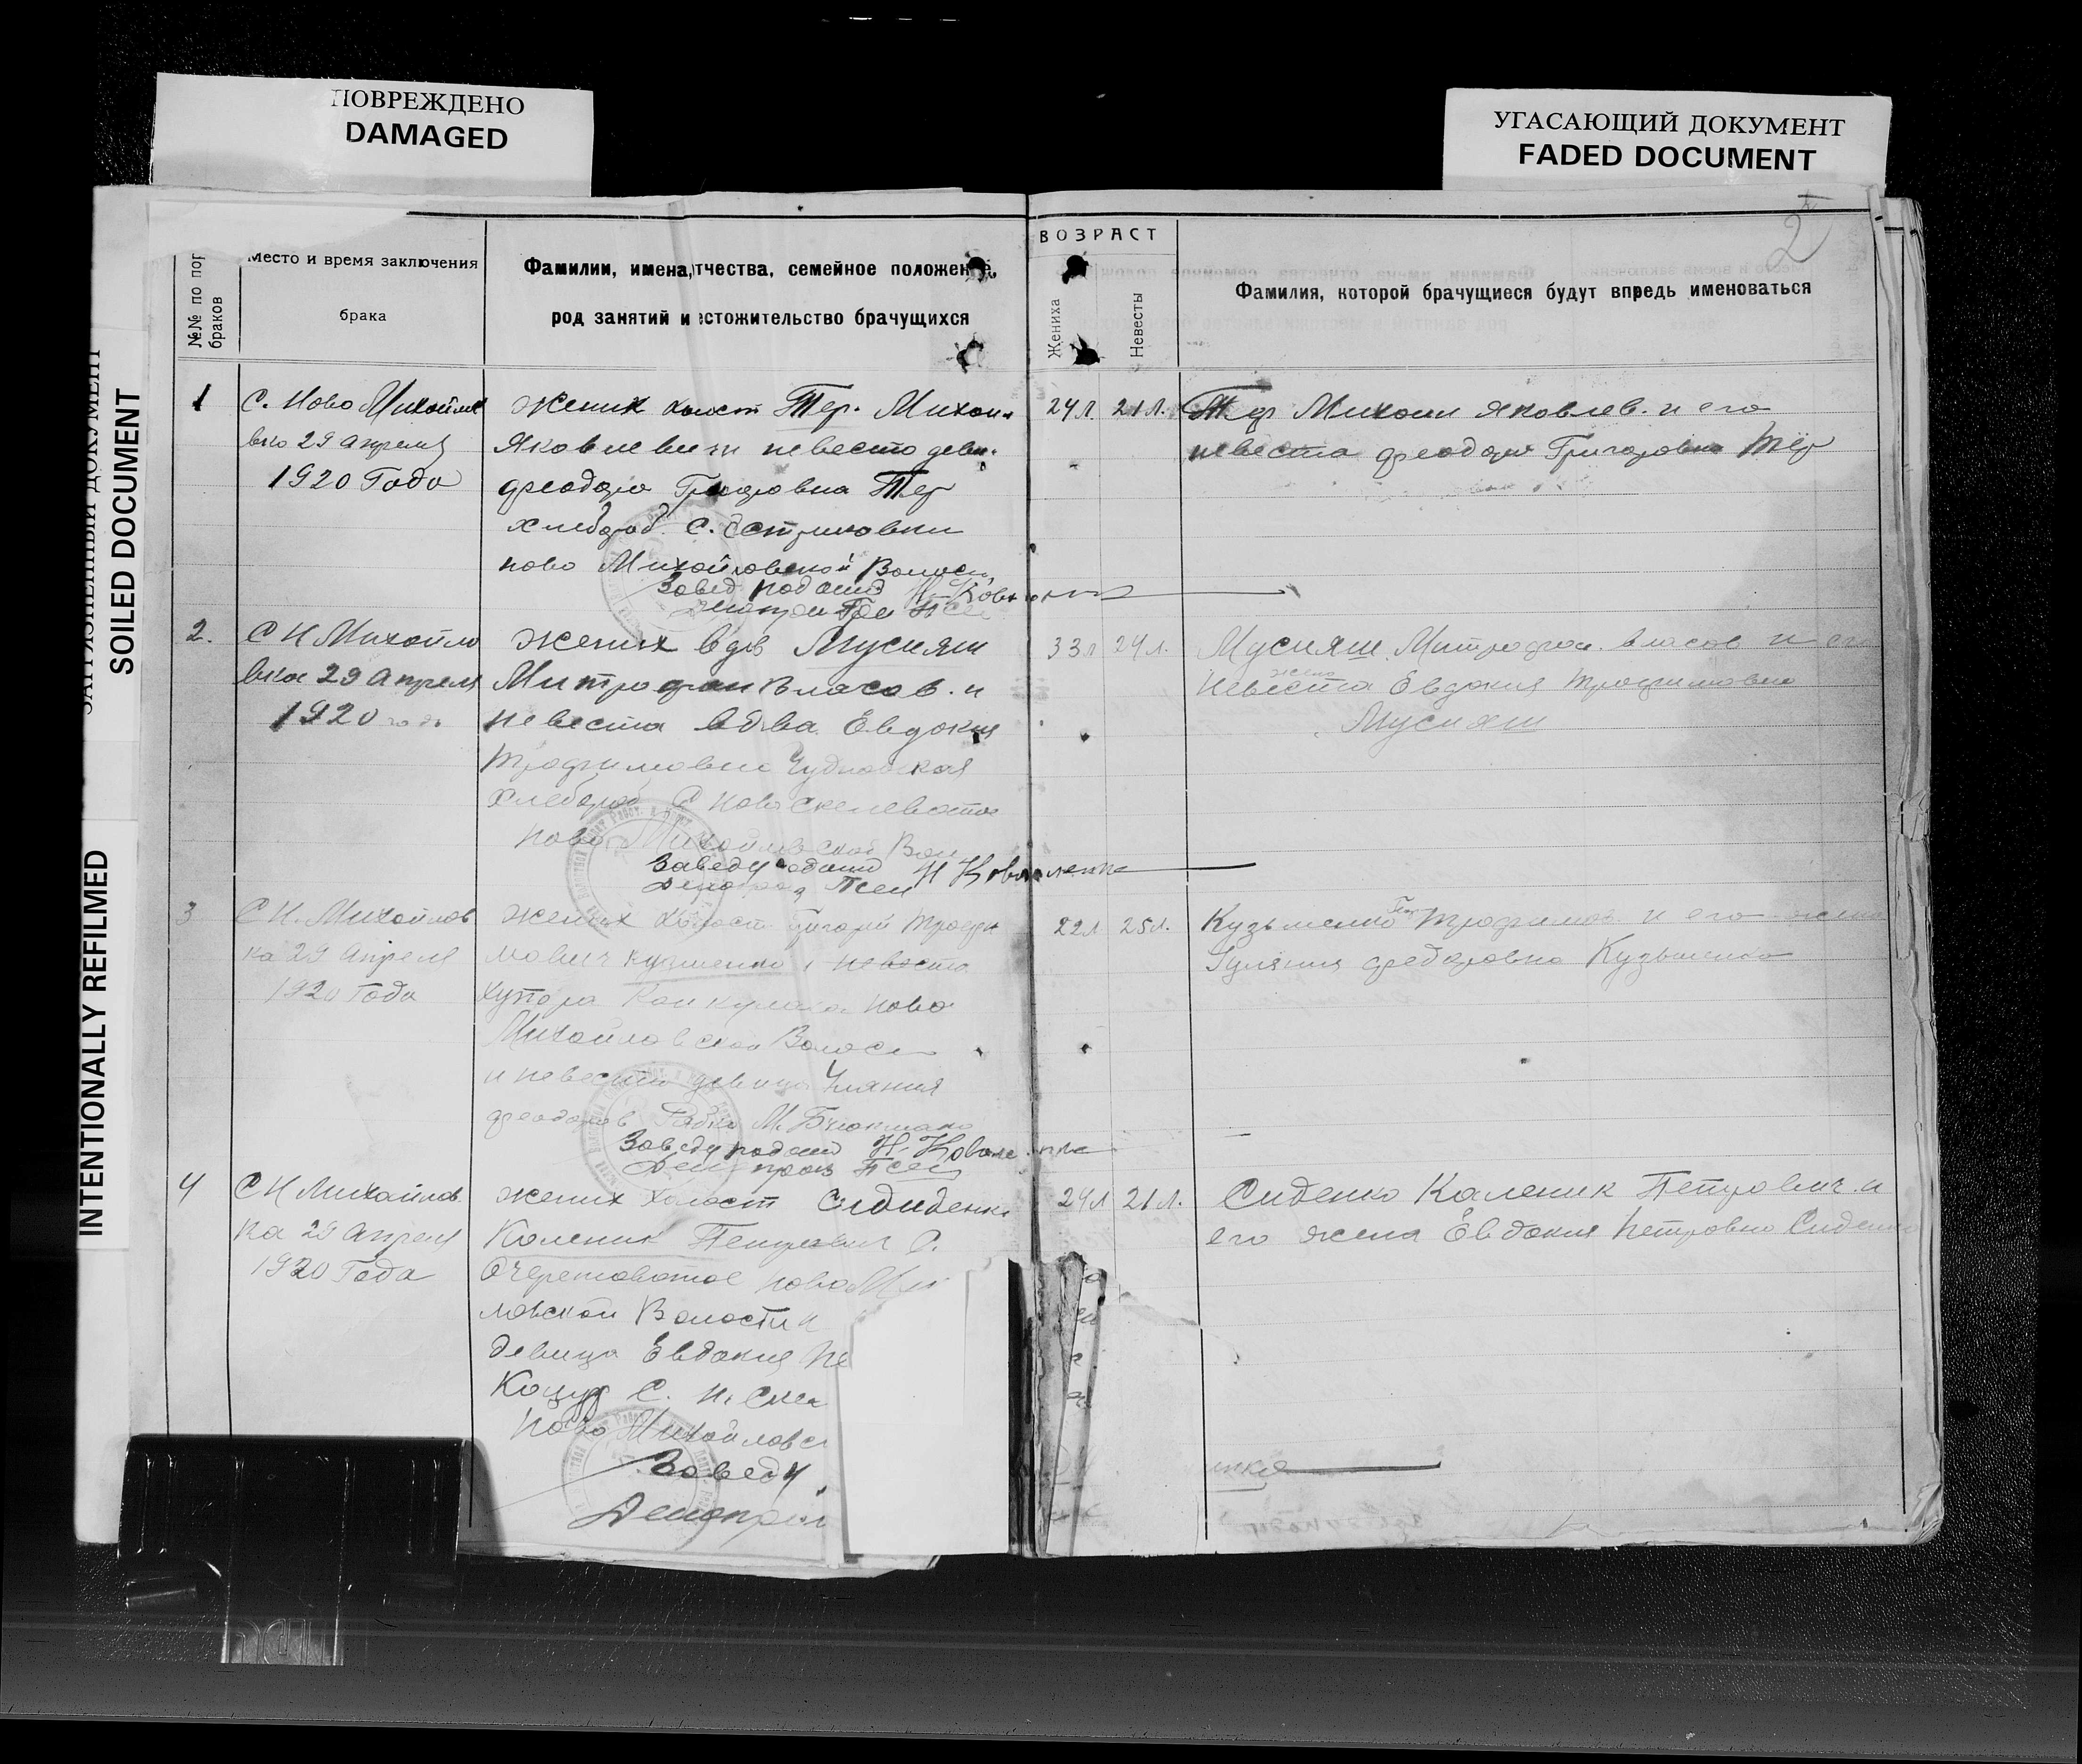 ПОВРЕЖДЕНО
DAMAGED
УГАСАЮЩИЙ ДОКУМЕНТ
FADED DOCUMENT
ЗАГРЯЗНЕННЫЙ ДОКУМЕНТ
SOILED DOCUMENT
INTENTIONALLY REFILMED
2
№№ по пор
браков
Место и время заключения
брака
Фамилии, имена, тчества, семейное положен
род занятий и естожительство брачущихся
ВОЗРАСТ
Жениха
Невесты
Фамилия, которой брачущиеся будут впредь именоваться
1
С. Ново Михайло
вка 29 апреля
1920 Года
Жених холост Тер. Михаил
Яковлевич невеста деви.
феодора Григоровна Тер
хлебороб. С.
ново Михайловской Волости
Завед подотд Н. Ковале
24 л. 21 л.
Тер Михаил Яковлев. и его
невеста феодора Григоровна Тер
2.
С Н Михайло
вка 29 Апреля
1920 года
Жених вдв Мусияш
Митрофан Власов. и
невеста вдва Евдокия
Трофимовна Чудновская
Хлебороб С Ново Скелеватое
Ново Михайловской Вол
Заведу подотд Н Коваленко
33 л 24 л.
Мусияш Митрофан. Власов и его
жена
Невеста Евдокия Трофимовна
Мусияш
3
С Н. Михайлов
ка 29 Апреля
1920 Года
Жених Холост Григорий Трофи
мович Кузменко и невеста
хутора Ново
Михайловской Волости
и невеста девица Улиания
феодоров
Заведу подотд Н. Ковале нко
22 л 25 л.
Кузьменко Гр Трофимов и его жена
Иулияния федоровна Кузьменко
4
С Н Михайлов
ка 29 Апреля
1920 Года
Жених Холост Сидиденко
Каленик Петрович С.
Очеретоватое ново Ми
ловской Волости и
девица Евдокия Пе
Коцур С. Н. Скел
Ново Михайловс
Заведу
24 л 21 л.
Сиденко Каленик Петрович и
его жена Евдокия Петровна Сиденко